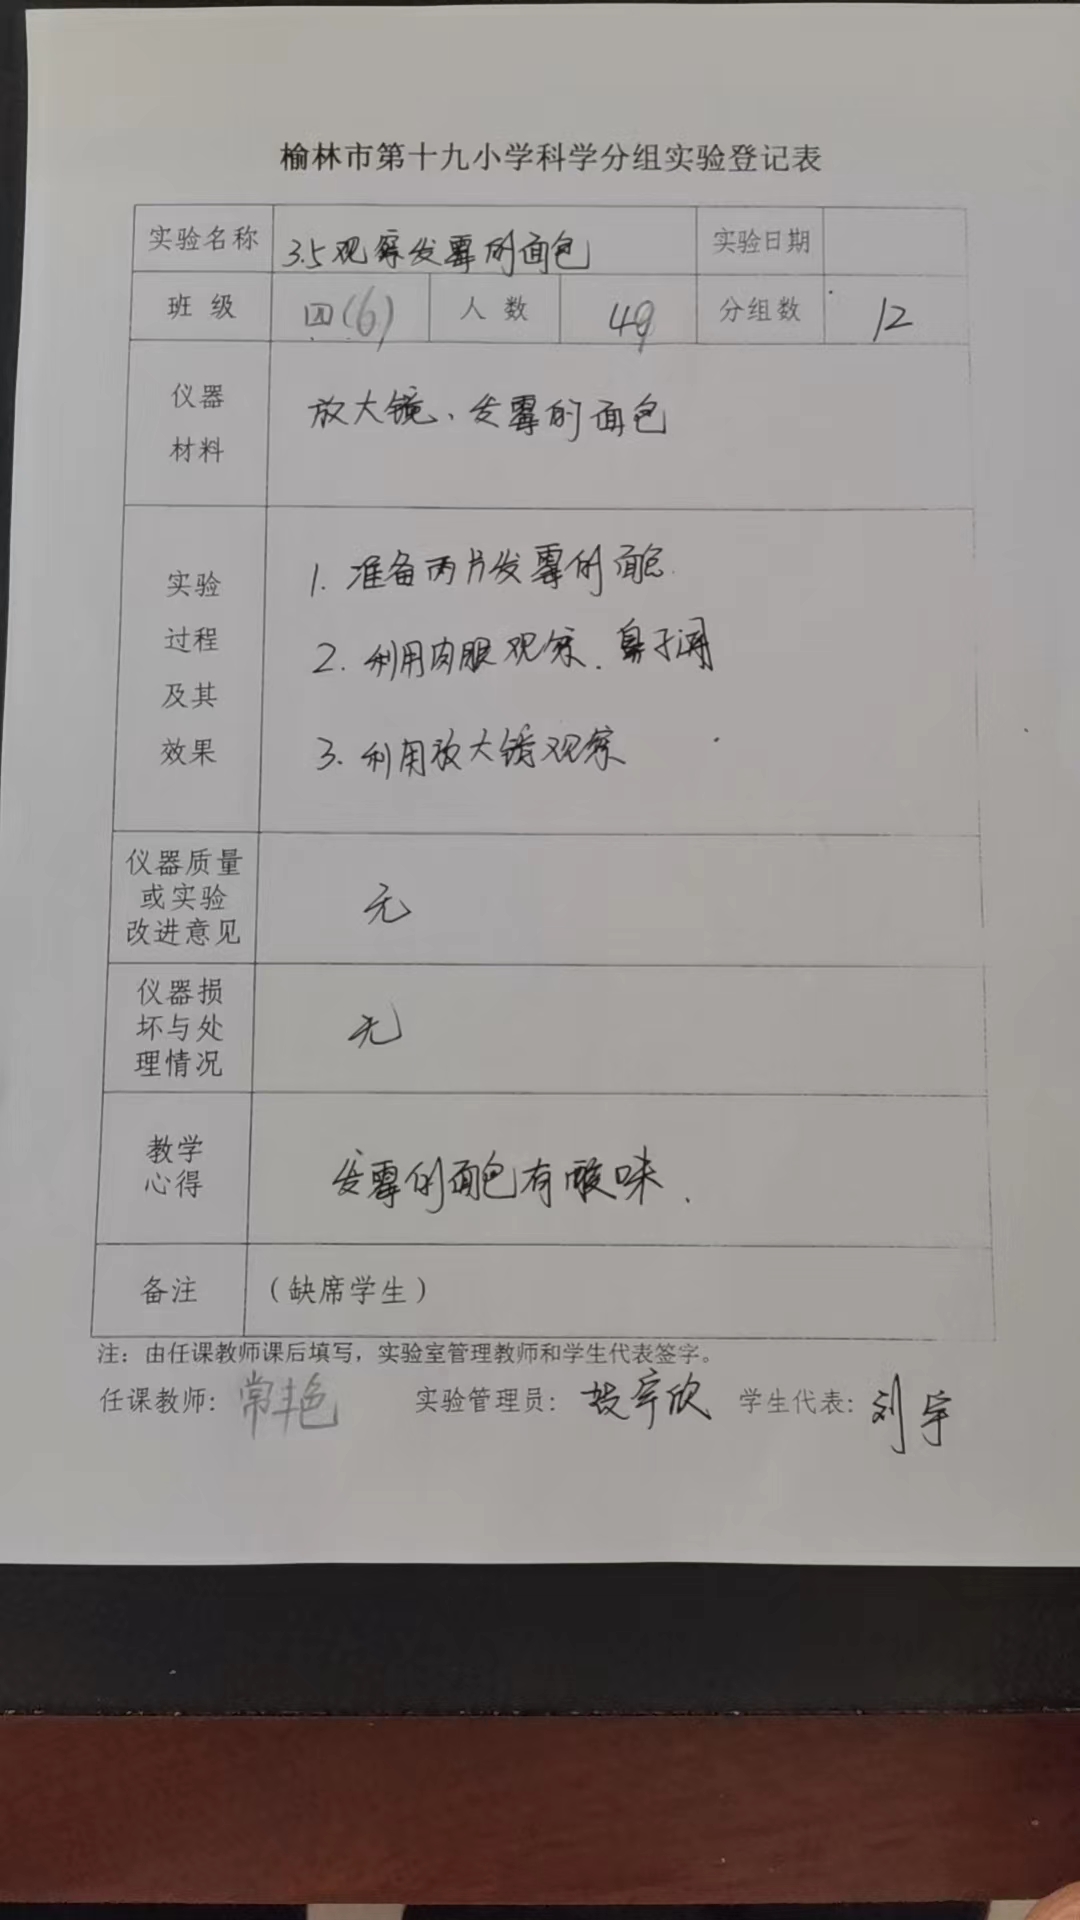 榆林市第十九小学科学分组实验登记表
实验名称 3.5观察发霉的面包 实验日期
班级 四(6) 人数 49 分组数 12
仪器
材料
放大镜、发霉的面包
实验
过程
及其
效果
1. 准备两片发霉的面包.
2. 利用肉眼观察.鼻子闻
3. 利用放大镜观察
仪器质量
或实验
改进意见
无
仪器损
坏与处
理情况
无
教学
心得
发霉的面包有酸味.
备注 （缺席学生）
注：由任课教师课后填写，实验室管理教师和学生代表签字。
任课教师: 常艳 实验管理员: 宇欣 学生代表: 刘宇